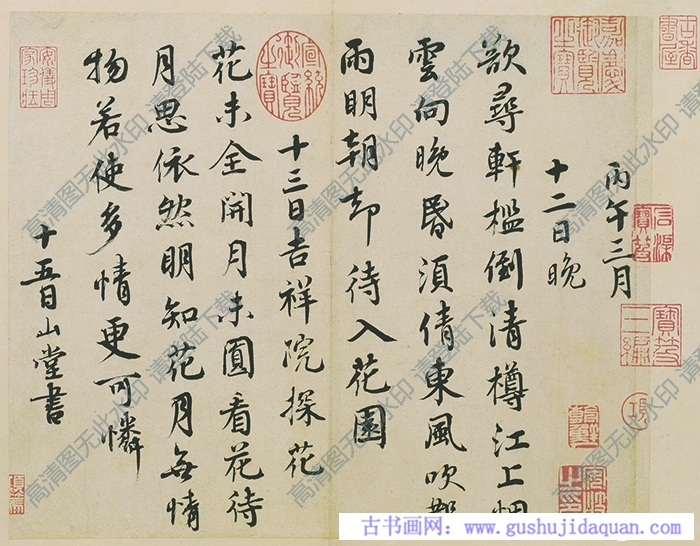 丙午三月
十二日晚
欲尋軒檻倒清樽江上烟
雲向晚昏須倩東風吹散
雨明朝却待入花園
十三日吉祥院探花
花未全開月未圓看花待
月思依然明知花月無情
物若使多情更可憐
十五日山堂書
嘉慶御覽之寶
宣統御覽之寶
高清图无此水印 请登陆下载
古书画网：www.gushujidaquan.com